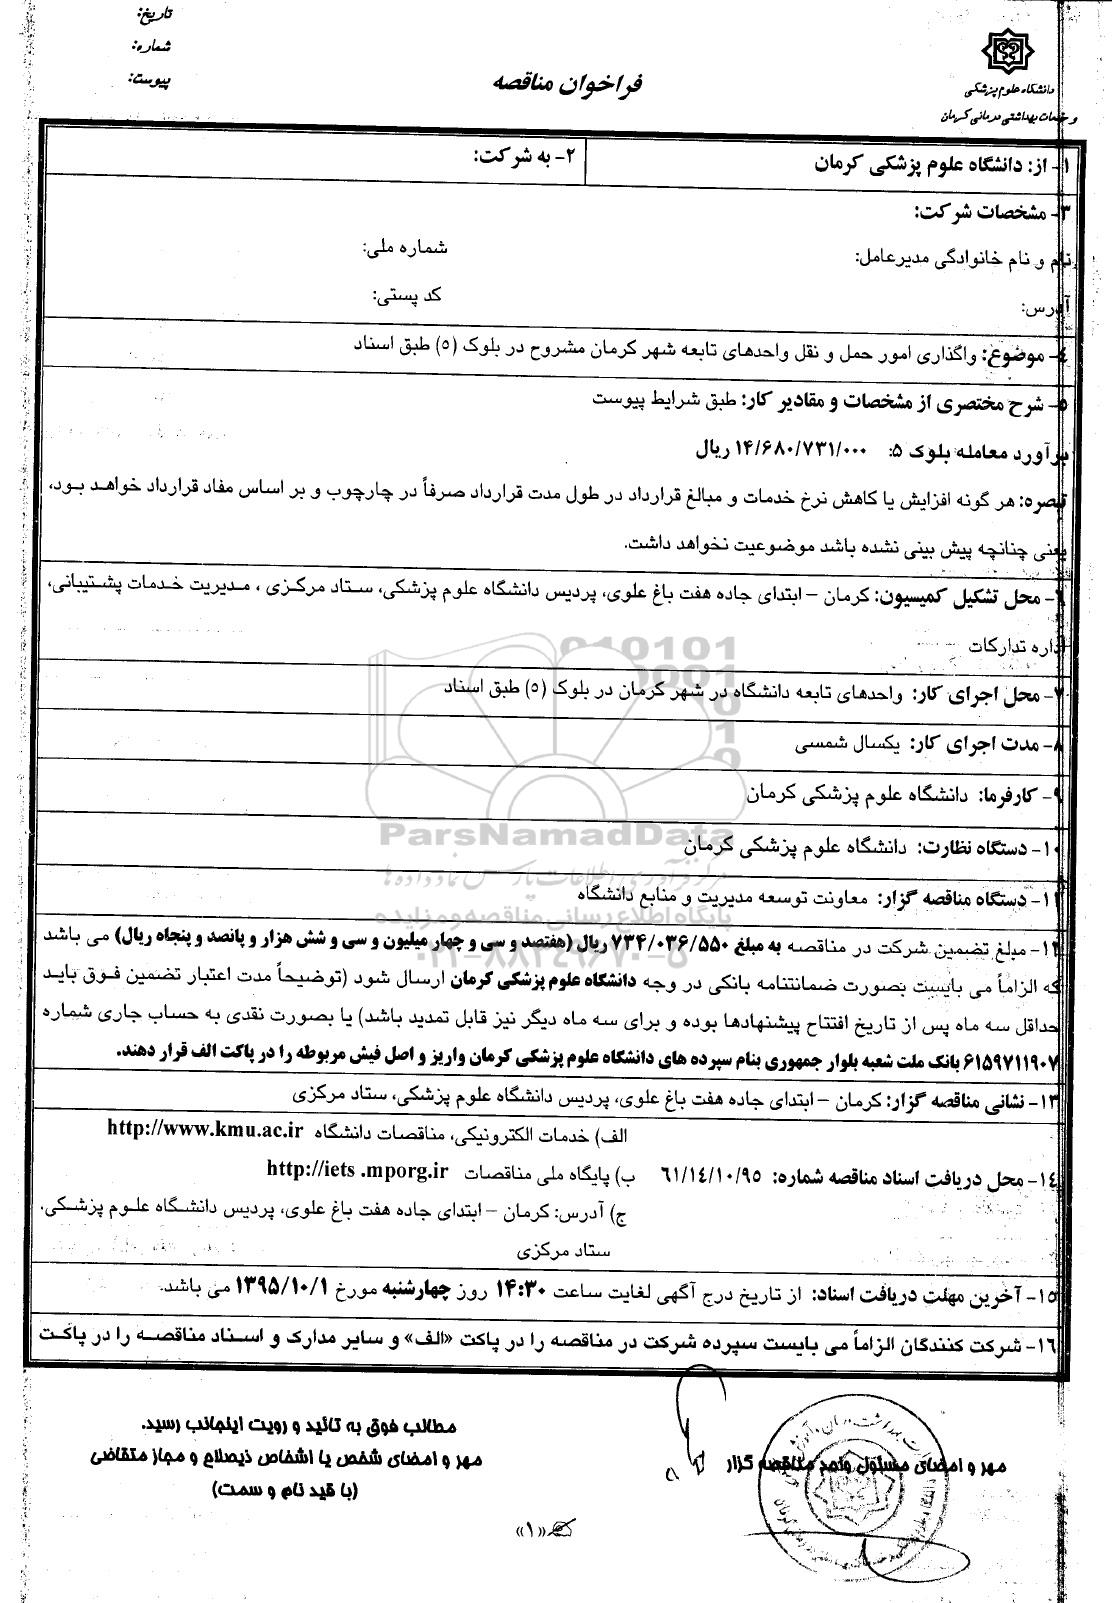 تاریخ:
شماره:
پیوست:
دانشگاه علوم پزشکی
و خدمات بهداشتی درمانی کرمان
فراخوان مناقصه
۱- از: دانشگاه علوم پزشکی کرمان
۲- به شرکت:
۳- مشخصات شرکت:
نام و نام خانوادگی مدیرعامل:
شماره ملی:
آدرس:
کد پستی:
۴- موضوع: واگذاری امور حمل و نقل واحدهای تابعه شهر کرمان مشروح در بلوک (۵) طبق اسناد
۵- شرح مختصری از مشخصات و مقادیر کار: طبق شرایط پیوست
برآورد معامله بلوک ۵: ۱۴/۶۸۰/۷۳۱/۰۰۰ ریال
تبصره: هر گونه افزایش یا کاهش نرخ خدمات و مبالغ قرارداد در طول مدت قرارداد صرفاً در چارچوب و بر اساس مفاد قرارداد خواهد بود،
یعنی چنانچه پیش بینی نشده باشد موضوعیت نخواهد داشت.
۶- محل تشکیل کمیسیون: کرمان – ابتدای جاده هفت باغ علوی، پردیس دانشگاه علوم پزشکی، ستاد مرکزی ، مدیریت خدمات پشتیبانی،
اداره تدارکات
۷- محل اجرای کار: واحدهای تابعه دانشگاه در شهر کرمان در بلوک (۵) طبق اسناد
۸- مدت اجرای کار: یکسال شمسی
۹- کارفرما: دانشگاه علوم پزشکی کرمان
ParsNamadData
۱۰- دستگاه نظارت: دانشگاه علوم پزشکی کرمان
مرکز فرآوری اطلاعات پارس نماد داده ها
۱۱- دستگاه مناقصه گزار: معاونت توسعه مدیریت و منابع دانشگاه
پایگاه اطلاع رسانی مناقصه و مزایده
۱۲- مبلغ تضمین شرکت در مناقصه به مبلغ ۷۳۴/۰۳۶/۵۵۰ ریال (هفتصد و سی و چهار میلیون و سی و شش هزار و پانصد و پنجاه ریال) می باشد
۰۲۱-۸۸۳۴۹۶۷۰-۵
که الزاماً می بایست بصورت ضمانتنامه بانکی در وجه دانشگاه علوم پزشکی کرمان ارسال شود (توضیحاً مدت اعتبار تضمین فوق باید
حداقل سه ماه پس از تاریخ افتتاح پیشنهادها بوده و برای سه ماه دیگر نیز قابل تمدید باشد) یا بصورت نقدی به حساب جاری شماره
۶۱۵۹۷۱۱۹۰۷ بانک ملت شعبه بلوار جمهوری بنام سپرده های دانشگاه علوم پزشکی کرمان واریز و اصل فیش مربوطه را در پاکت الف قرار دهند.
۱۳- نشانی مناقصه گزار: کرمان – ابتدای جاده هفت باغ علوی، پردیس دانشگاه علوم پزشکی، ستاد مرکزی
الف) خدمات الکترونیکی، مناقصات دانشگاه http://www.kmu.ac.ir
۱۴- محل دریافت اسناد مناقصه شماره: ۶۱/۱۴/۱۰/۹۵ ب) پایگاه ملی مناقصات http://iets .mporg.ir
ج) آدرس: کرمان – ابتدای جاده هفت باغ علوی، پردیس دانشگاه علوم پزشکی،
ستاد مرکزی
۱۵- آخرین مهلت دریافت اسناد: از تاریخ درج آگهی لغایت ساعت ۱۴:۳۰ روز چهارشنبه مورخ ۱۳۹۵/۱۰/۱ می باشد.
۱۶- شرکت کنندگان الزاماً می بایست سپرده شرکت در مناقصه را در پاکت «الف» و سایر مدارک و اسناد مناقصه را در پاکت
مهر و امضای مسئول واحد مناقصه گزار
مطالب فوق به تائید و رویت اینجانب رسید.
مهر و امضای شخص یا اشخاص ذیصلاح و مجاز متقاضی
(با قید نام و سمت)
«۱»